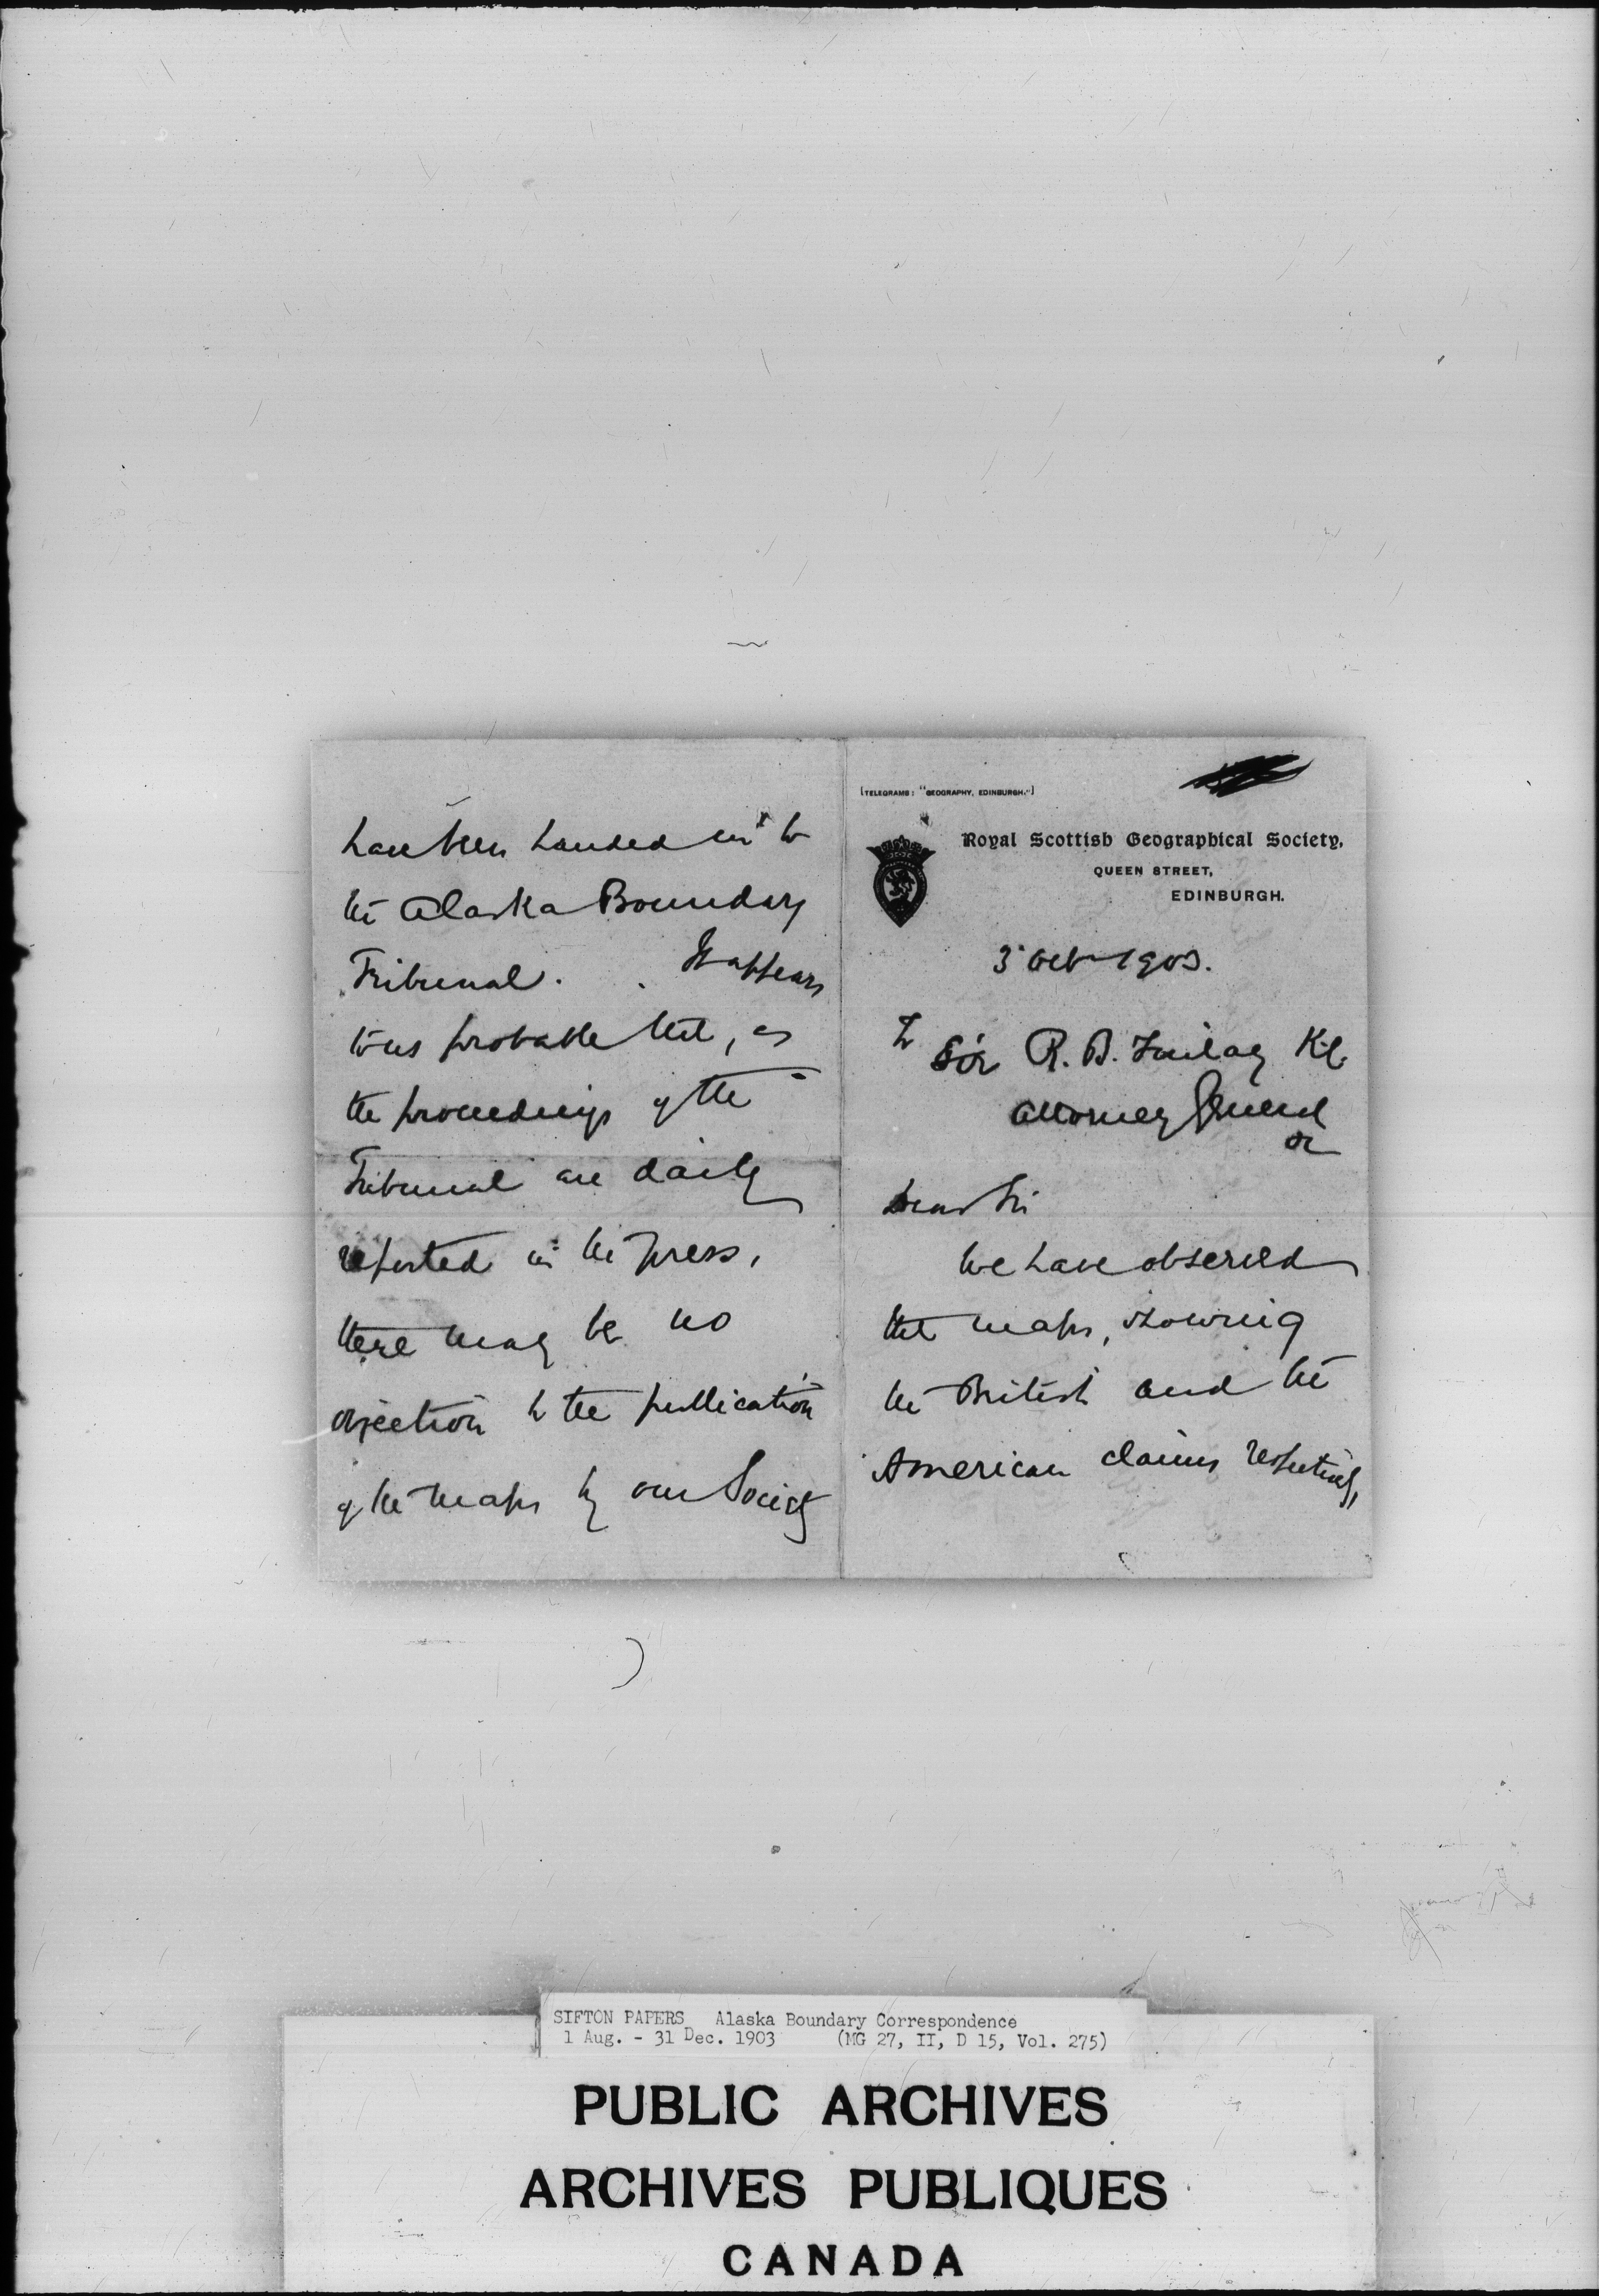 [TELEGRAMS: "GEOGRAPHY, EDINBURGH."]
Royal Scottish Geographical Society,
QUEEN STREET,
EDINBURGH.
3 Oct 1903.
To Sir R. B. Finlay K.C.
Attorney General
Dear Sir
We have observed
that maps, showing
the British and the
American claims respectively,
have been handed in to
the Alaska Boundary
Tribunal. It appears
to us probable that, as
the proceedings of the
Tribunal are daily
reported in the press,
there may be no
objection to the publication
of the maps by our Society
SIFTON PAPERS Alaska Boundary Correspondence
1 Aug. - 31 Dec. 1903 (MG 27, II, D 15, Vol. 275)
PUBLIC ARCHIVES
ARCHIVES PUBLIQUES
CANADA